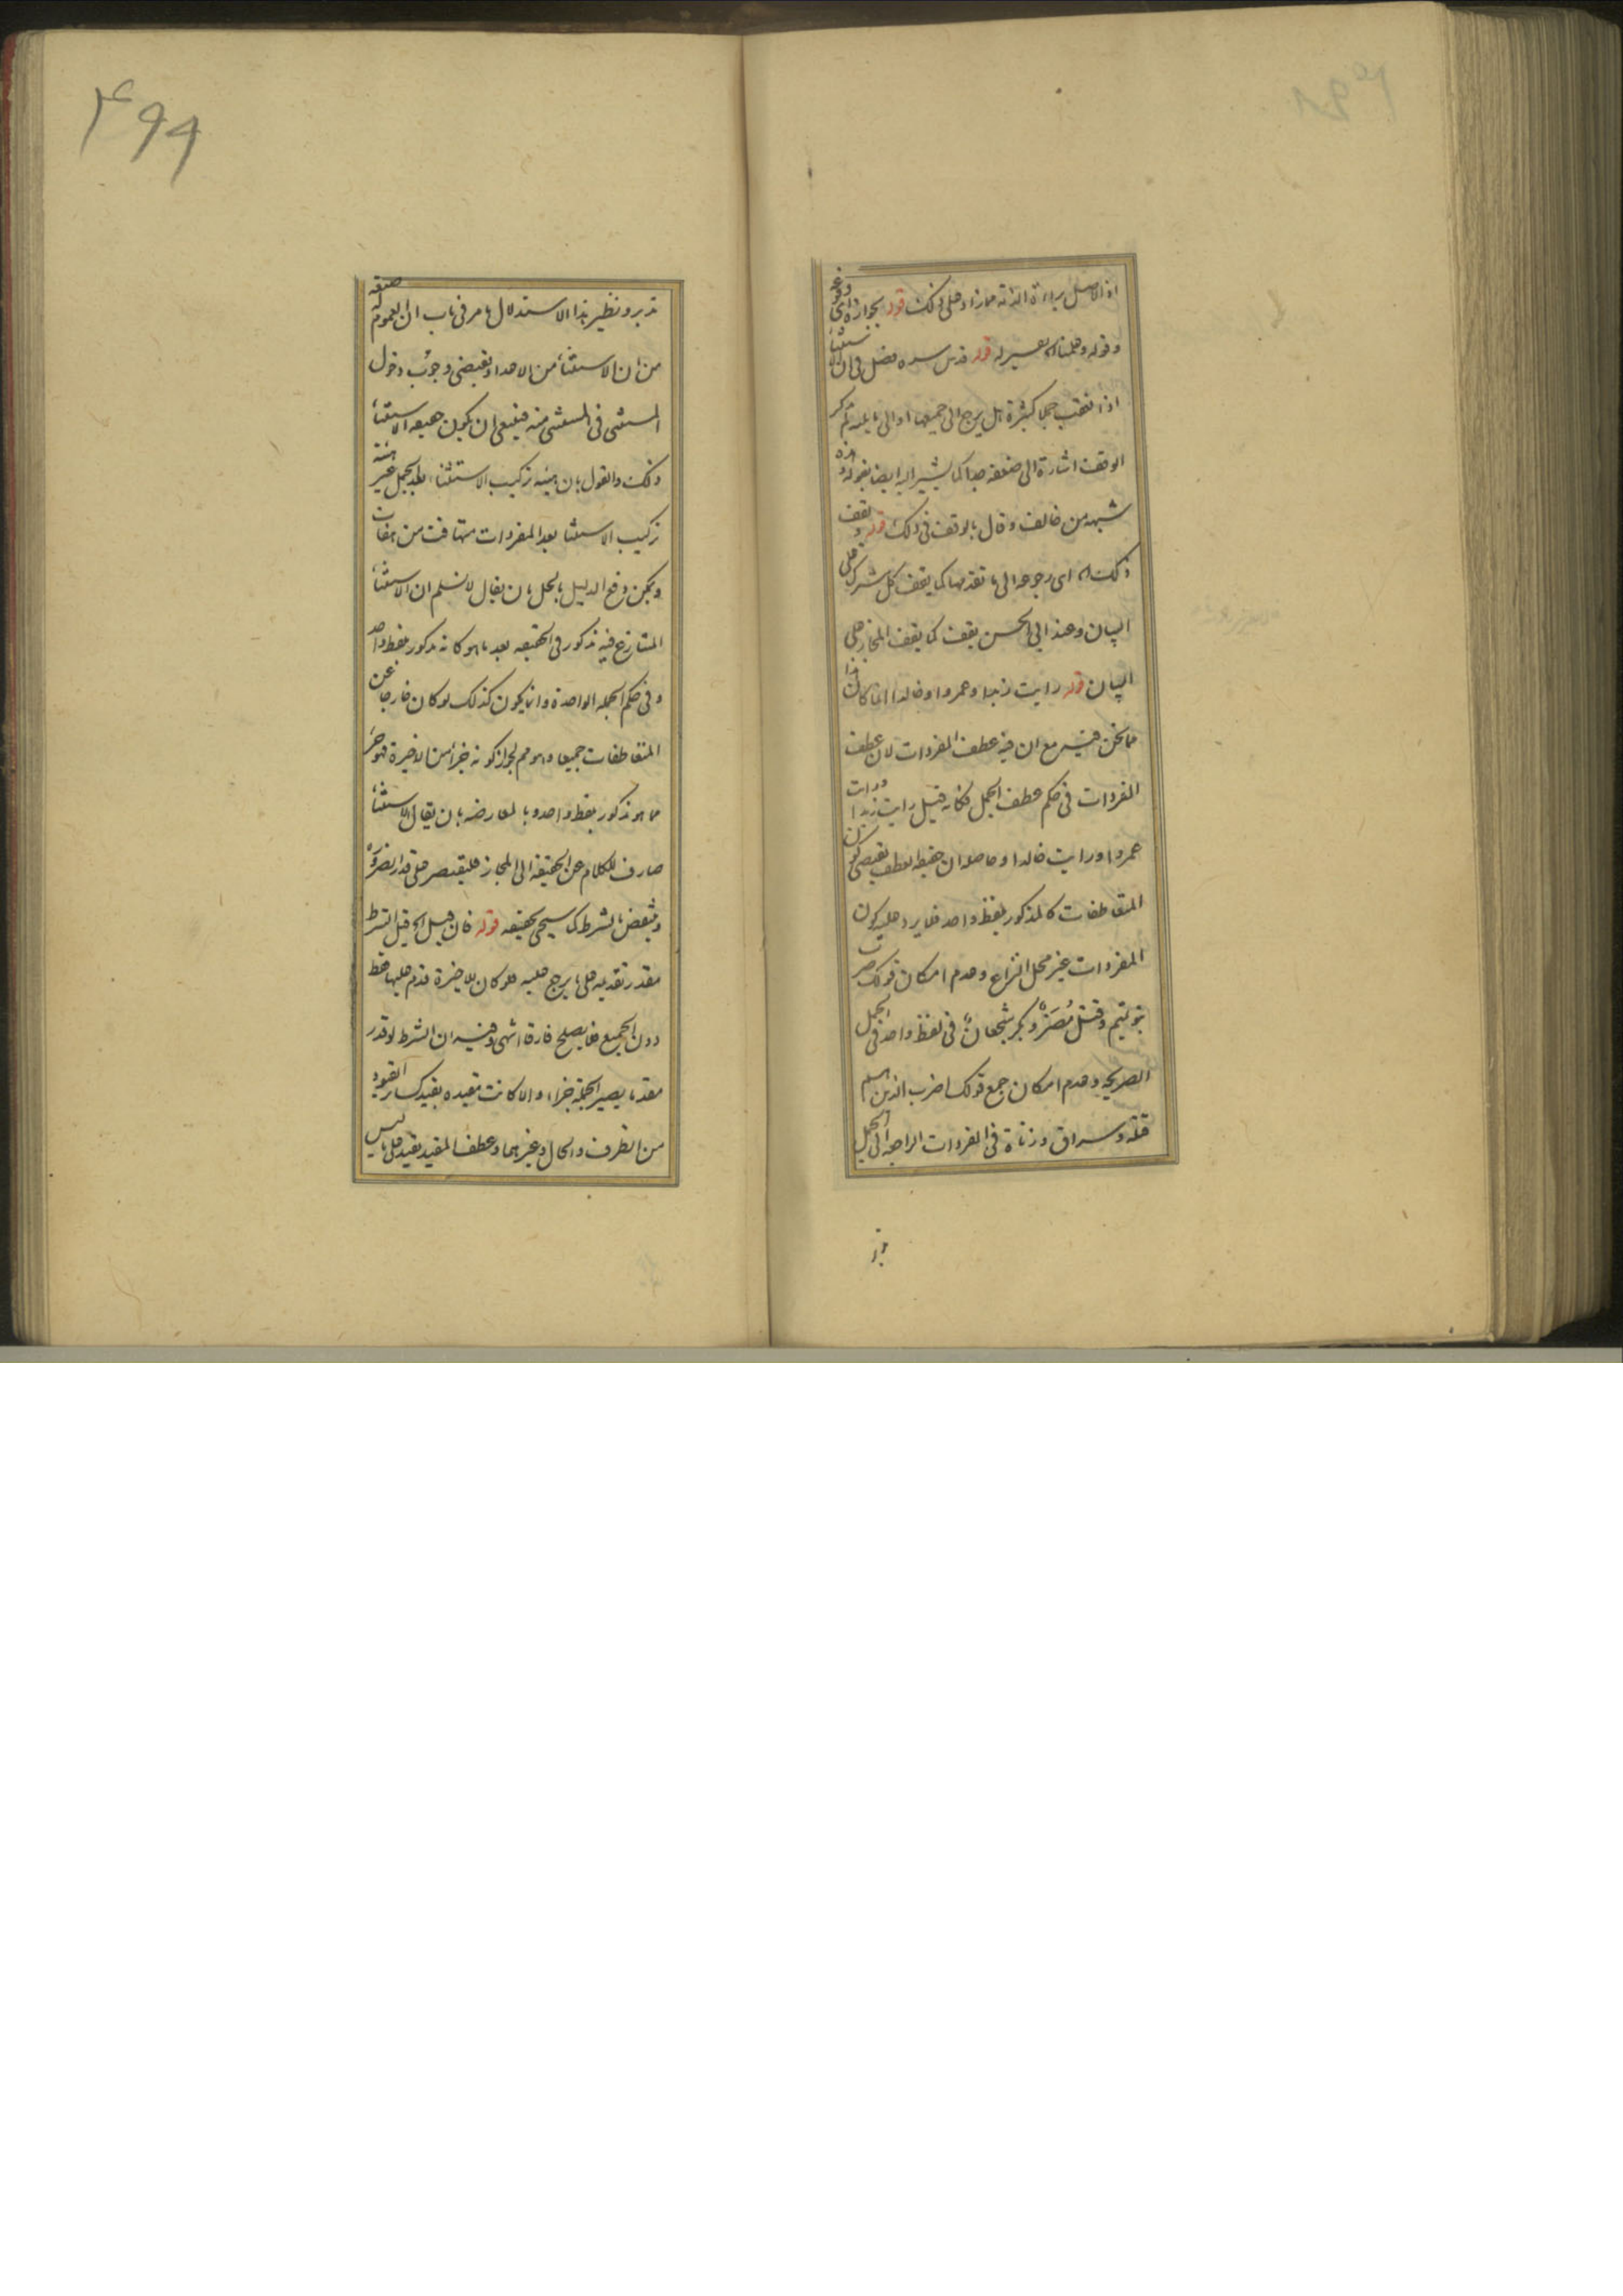 اذ الاصل براءة الذمة مما زاد على ذلك قوله بجوازه اى وقوعه
وقوله وههنا تفسير له قوله قدس سره فصل فى ان الاستثنا
اذا تعقب جملا كثيرة هل يرجع الى جميعها او الى ما يليه لم يذكر
الوقف اشارة الى ضعفه جدا كما يشير اليه ايضا بقوله وهذه
شبهه من خالف وقال بالوقف فى ذلك قوله ويقف
ذلك اه اى رجوعه الى ما تقدمها كما يقف كل مشترك على
البيان وعند ابى الحسن يقف كما يقف المجاز على
البيان قوله رايت زيدا وعمروا وخالدا انما كان هذا
مما نحن فيه مع ان فيه عطف المفردات لان عطف
المفردات فى حكم عطف الجمل فكانه قيل رايت زيدا ورايت
عمروا ورايت خالدا وحاصله ان حقيقه العطف يقتضى كون
المتعاطفات كالمذكور بلفظ واحد فلا يرد عليه كون
المفردات غير محل النزاع وعدم امكان قولك ضربت
بنو تميم وقتل مُضَرٌ وبكر شجعانٌ فى لفظ واحد فى الجمل
الصريحه وعدم امكان جمع قولك اضرب الذين هم
قتلة وسراق وزناة فى المفردات الراجعه الى الجمل
تدبر
۴۹۹
تدبر ونظير هذا الاستدلال ما مر فى باب ان للعموم صيغه
من ان الاستثنا من الاعداد يقتضى وجوب دخول
المستثنى فى المستثنى منه فينبغى ان يكون حقيقه الاستثنا
ذلك والقول بان هيئه تركيب الاستثنا بعد الجمل غير هيئه
تركيب الاستثنا بعد المفردات متهافت من
ويمكن دفع الدليل بالحل بان يقال لا نسلم ان الاستثنا
المتنازع فيه مذكور فى الحقيقه بعد ما هو كانه مذكور بلفظ واحد
وفى حكم الجمله الواحدة وانما يكون كذلك لو كان خارجا عن
المتعاطفات جميعا وهو مم لجواز كونه جزأ من الاخيرة فهو جزء
مما هو مذكور بلفظ واحد وبالمعارضه بان يقال الاستثنا
صارف للكلام عن الحقيقه الى المجاز فليقتصر على قدر الضرورة
وينتقض بالشرط كما سيجى تحقيقه قوله فان قيل اه قيل الشرط
مقدر تقديمه على ما يرجع عليه فلو كان للاخيرة قدم عليها فقط
دون الجميع فلا يصلح فارقا انتهى وفيه ان الشرط لو قدر
مقدما يصير الجملة جزاء والا كانت مقيده بقيد كساير القيود
من الظرف والحال وغيرهما وعطف المقيد بقيد على ما ليس